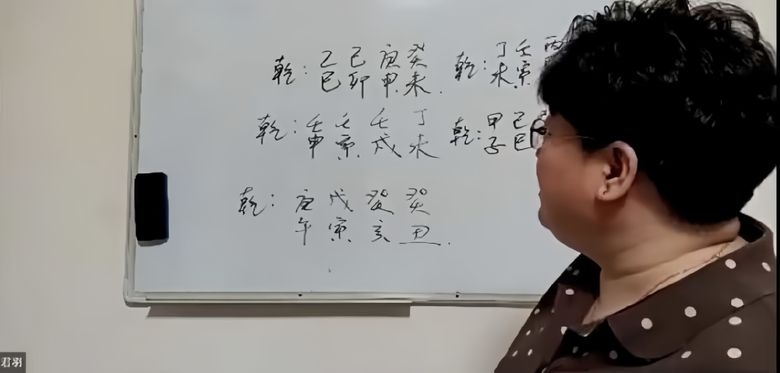 乾: 乙 己 庚 癸
巳 卯 申 未.
乾: 丁 壬 丙
未 寅
乾: 壬 壬 壬 丁
申 寅 戌 未
乾: 甲 己
子 巳
乾: 庚 戊 癸 癸
午 寅 亥 丑.
君羽